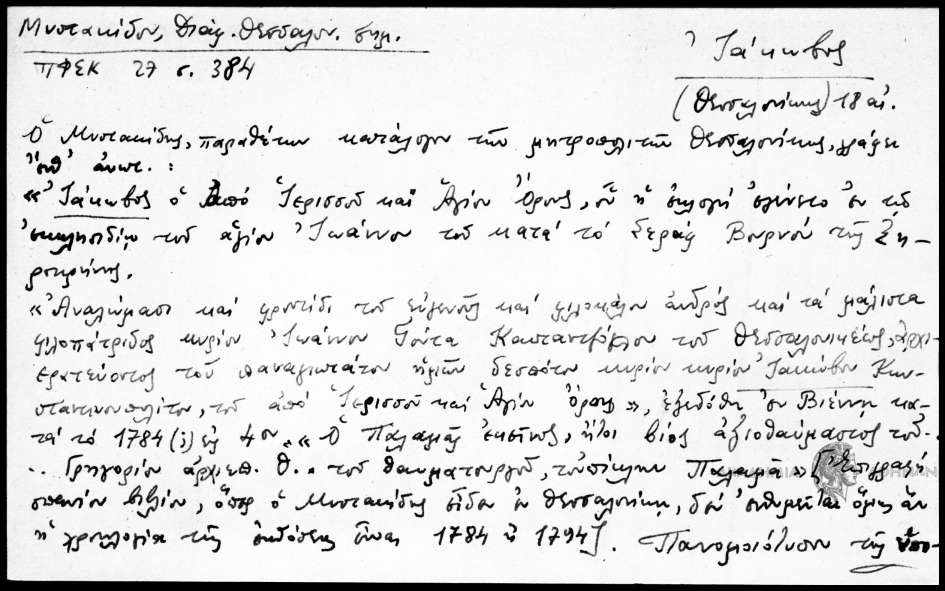 Μυστακίδου, Διάφ. Θεσσαλον. σημ.
ΠΦΣΚ 27 σ. 384
Ἰάκωβος
(Θεσσαλονίκης) 18 αἰ.
Ὁ Μυστακίδης, παραθέτων κατάλογον τῶν μητροπολιτῶν Θεσσαλονίκης, γράφει
ἔνθ' ἀνωτ. :
«Ἰάκωβος ὁ ἀπό Ἱερισσοῦ καί Ἁγίου Ὄρους, οὗ ἡ ἐκλογή ἐγένετο ἐν τῷ
ἐκκλησιδίῳ τοῦ ἁγίου Ἰωάννου τοῦ κατά τό Σεράγ Βουρνοῦ τῆς Ξη-
ροκρήνης.
«Ἀναλώμασι καί φροντίδι τοῦ εὐγενοῦς καί φιλοκάλου ἀνδρός καί τά μάλιστα
φιλοπάτριδος κυρίου Ἰωάννου Γούτα Καυταντζόγλου τοῦ Θεσσαλονικέως, ἀρχι-
ερατεύοντος τοῦ παναγιωτάτου ἡμῶν δεσπότου κυρίου κυρίου Ἰακώβου Κων-
σταντινουπολίτου, τοῦ ἀπό Ἱερισσοῦ καί Ἁγίου Ὄρους», ἐξεδόθη ἐν Βιέννῃ κα-
τά τό 1784 (;) εἰς 4ον «Ὁ Παλαμᾶς ἐκεῖνος, ἤτοι βίος ἀξιοθαύμαστος τοῦ..
.. Γρηγορίου ἀρχιεπ. Θ.. τοῦ θαυματουργοῦ, τοὐπίκλην Παλαμᾶ»
σπανίου βιβλίου, ὅπερ ὁ Μυστακίδης εἶδεν ἐν Θεσσαλονίκῃ, δέν ἐνθυμεῖται ὅμως ἄν
ἡ χρονολογία τῆς ἐκδόσεως εἶναι 1784 ἤ 1794]. Πανομοιότυπον τῆς ὑπο-